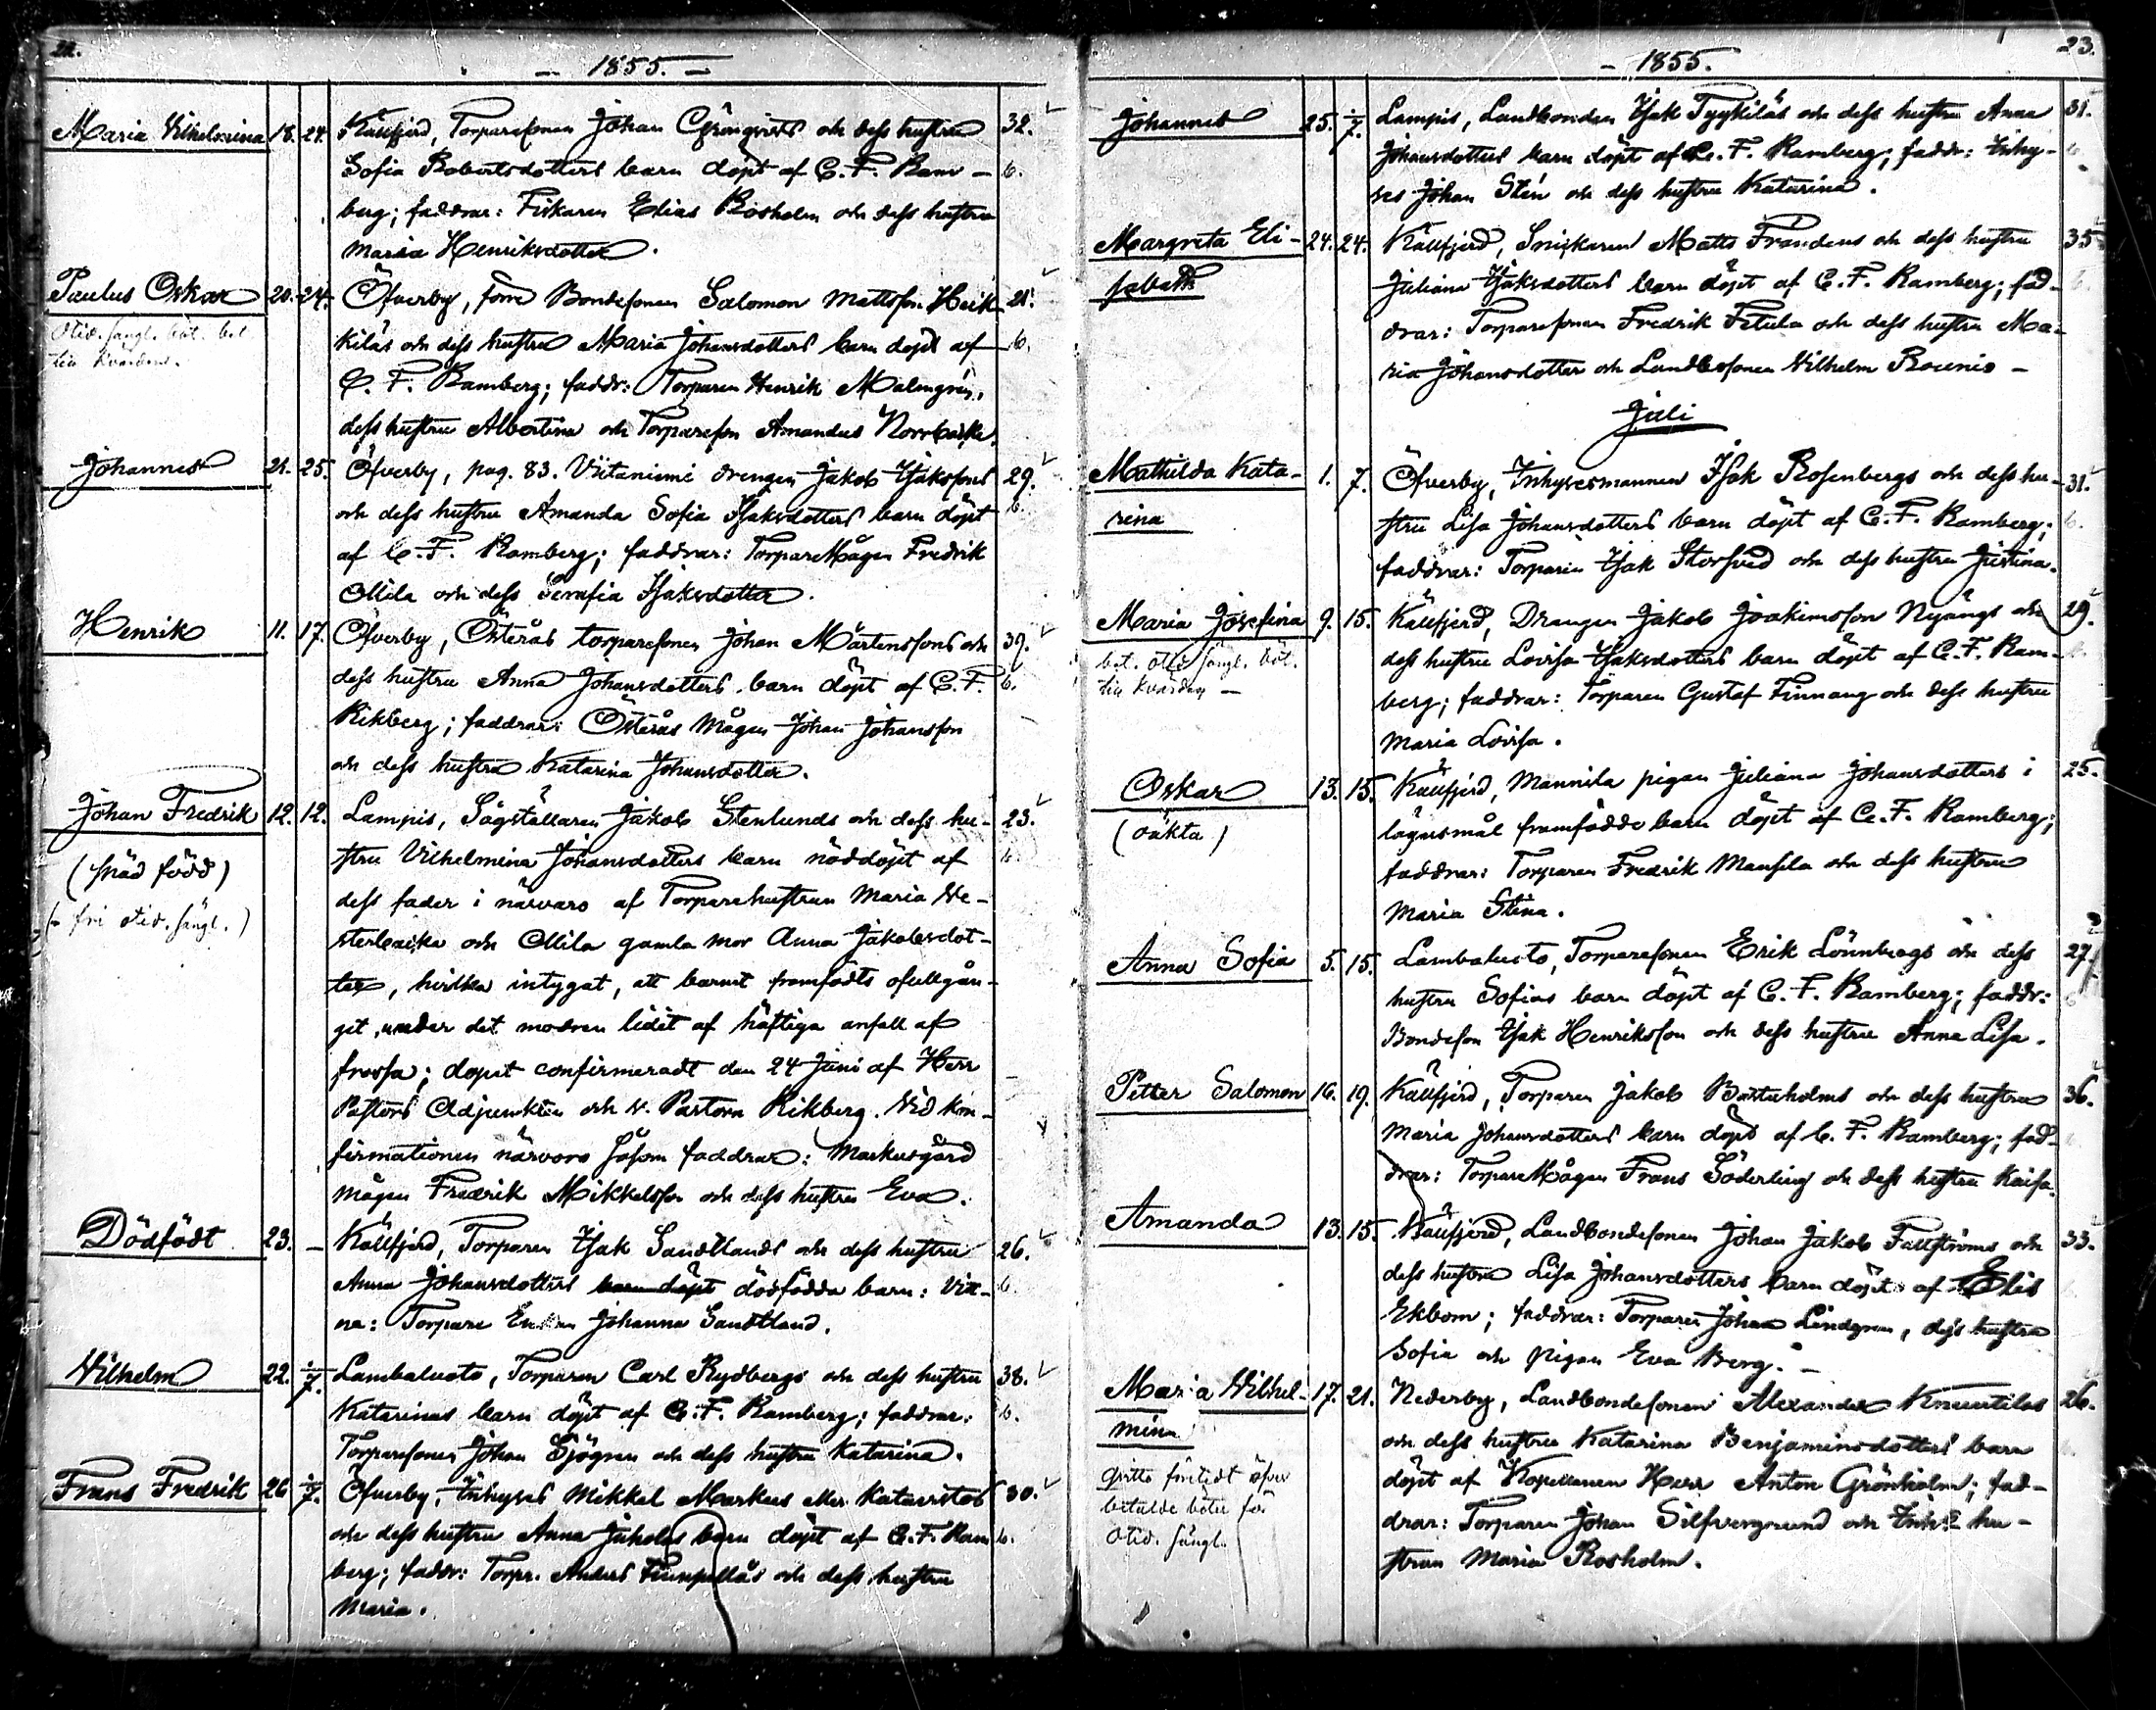 22.
- 1855. -
Maria Vilhelmina 18. 24. Källfjerd, Torparesonen Johan Grönqvists och dess hustru 32.
Sofia Robertsdotters barn döpt af C. F. Ram- 6.
berg; faddrar: Fiskaren Elias Rosholm och dess hustru
Maria Henriksdotter.
Paulus Oskar 20. 24. Öfverby, förre Bondesonen Salomon Mattsson Heik- 21.
otid. sängl. böt. bet.
kiläs och dess hustru Maria Johansdotters barn döpt af 6.
C. F. Ramberg; faddr: Torparen Henrik Malmgren,
dess hustru Albertina och Torpareson Amandus Norrbacka.
Johannes 21. 25. Öfverby, pag. 83. Viitaniemi drengen Jakob Isakssons 29.
och dess hustru Amanda Sofia Isaksdotters barn döpt 6.
af C. F. Ramberg; faddrar: Torparemågen Fredrik
Ollila och dess Serafia Isaksdotter.
Henrik 11. 17. Öfverby, Österås torparesonen Johan Mårtenssons och 39.
dess hustru Anna Johansdotters barn döpt af C. F. 6.
Rikberg; faddrar: Österås mågen Johan Johansson
och dess hustru Katarina Johansdotter.
Johan Fredrik 12. 12. Lampis, Sågställaren Jakob Stenlunds och dess hu- 23.
stru Vilhelmina Johansdotters barn nöddöpt af 6.
(späd född)
dess fader i närvaro af Torparehustrun Maria Ve-
(- fri otid. sängl.)
sterbacka och Ollila gamla mor Anna Jakobsdot-
ter, hvilka intygat, att barnet framfödts ofullgån-
get, under det modren lidit af häftiga anfall af
frossa; dopet confirmeradt den 24 Juni af Herr
Pastors Adjunkten och v. Pastorn Rikberg. Vid kon-
firmationen närvoro såsom faddrar: Markusgård
mågen Fredrik Mikkelsson och dess hustru Eva.
Dödfödt 23. - Källfjerd, Torparen Isak Sandstlands och dess hustru 26.
Anna Johansdotters barn döpt dödfödda barn: Vitt- 6.
ne: Torpare Enkan Johanna Sandtland.
Vilhelm 22. 1/7. Lambaluoto, Torparen Carl Rydbergs och dess hustru 38.
Katarinas barn döpt af C. F. Ramberg; faddrar: 6.
Torparesonen Johan Sjögren och dess hustru Katarina.
Frans Fredrik 26 1/7. Öfverby, Inhyses Mikkel Markus eller 30.
och dess hustru Anna barn döpt af C. F. Ram- 6.
berg; faddr: Torpr. Anders och dess hustru
Maria.
23.
- 1855.
Johannes 25. 1/7. Lampis, Landbonden Isak Tyykiläs och dess hustru Anna 31.
Johansdotters barn döpt af C. F. Ramberg; faddr: Inhy- 6.
ses Johan Sten och dess hustru Katarina.
Margreta Eli- 24. 24. Källfjerd, Snickaren Matts Frandens och dess hustru 35
sabeth Juliana Isaksdotters barn döpt af C. F. Ramberg; fad- 6.
drar: Torparesonen Fredrik Fetula och dess hustru Ma-
ria Johansdotter och Landbosonen Vilhelm Rounis -
Juli
Mathilda Kata- 1. 7. Öfverby, Inhysesmannen Isak Rosenbergs och dess hu- 31.
rina stru Lisa Johansdotters barn döpt af C. F. Ramberg; 6.
faddrar: Torparen Isak Storsved och dess hustru Justina.
Maria Josefina 9. 15. Källfjerd, Drangen Jakob Joakimsson Nyängs och 29.
bet. otid. sängl. böt.
dess hustru Lovisa Isaksdotters barn döpt af C. F. Ram- 6.
berg; faddrar: Torparen Gustaf Finnäng och dess hustru
Maria Lovisa.
Oskar 13. 15. Källfjerd, Mannila pigan Juliana Johansdotters i 25.
(oäkta) lägersmål framfödde barn döpt af C. F. Ramberg;
faddrar: Torparen Fredrik Mansila och dess hustru
Maria Stina.
Anna Sofia 5. 15. Lambaluoto, Torparesonen Erik Lönnbergs och dess 27.
hustru Sofias barn döpt af C. F. Ramberg; faddr: 6
Bondeson Isak Henriksson och dess hustru Anna Lisa.
Petter Salomon 16. 19. Källfjerd, Torparen Jakob Bastuholms och dess hustru 36.
Maria Johansdotters barn döpt af C. F. Ramberg; fad-
drar: Torparemågen Frans Söderling och dess hustru Kaisa.
Amanda 13. 15. Källfjerd, Landbondesonen Johan Jakob Fallströms och 33.
dess hustru Lisa Johansdotters barn döpt af Elis
Ekbom; faddrar: Torparen Johan Lindgren, dess hustru
Sofia och pigan Eva Berg. -
Maria Vilhel- 17. 21. Nederby, Landbondesonen Alexander Knuutilas 26.
mina och dess hustru Katarina Benjaminsdotters barn
döpt af Kapellanen Herr Anton Grönholm; fad-
betalde böter för
drar: Torparen Johan Silfvergrund och hu-
otid. sängl.
strun Maria Rosholm.